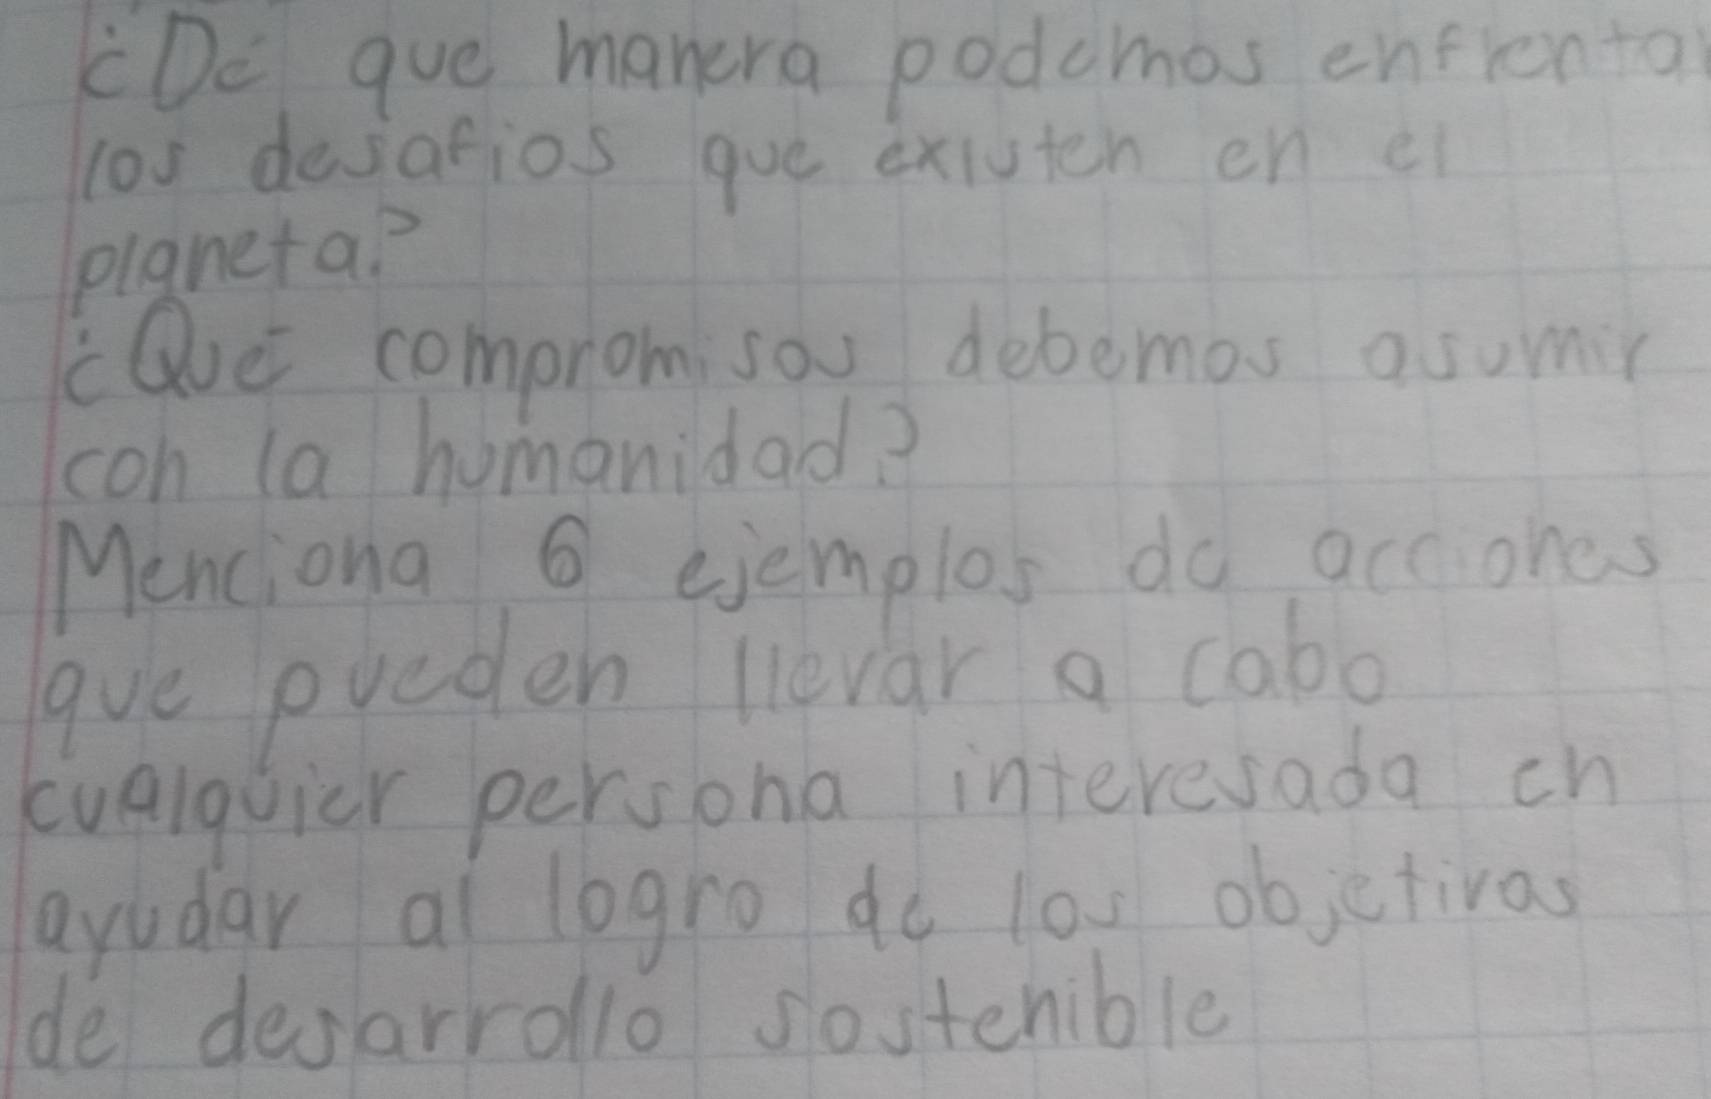 ¿De que manera podemos enfrentar
los desafios que existen en el
planeta?
¿Qué compromisos debemos asumir
con la humanidad?
Menciona 6 ejemplos de acciones
que pueden llevar a cabo
cualquier persona interesada en
ayudar al logro de los objetivos
de desarrollo sostenible